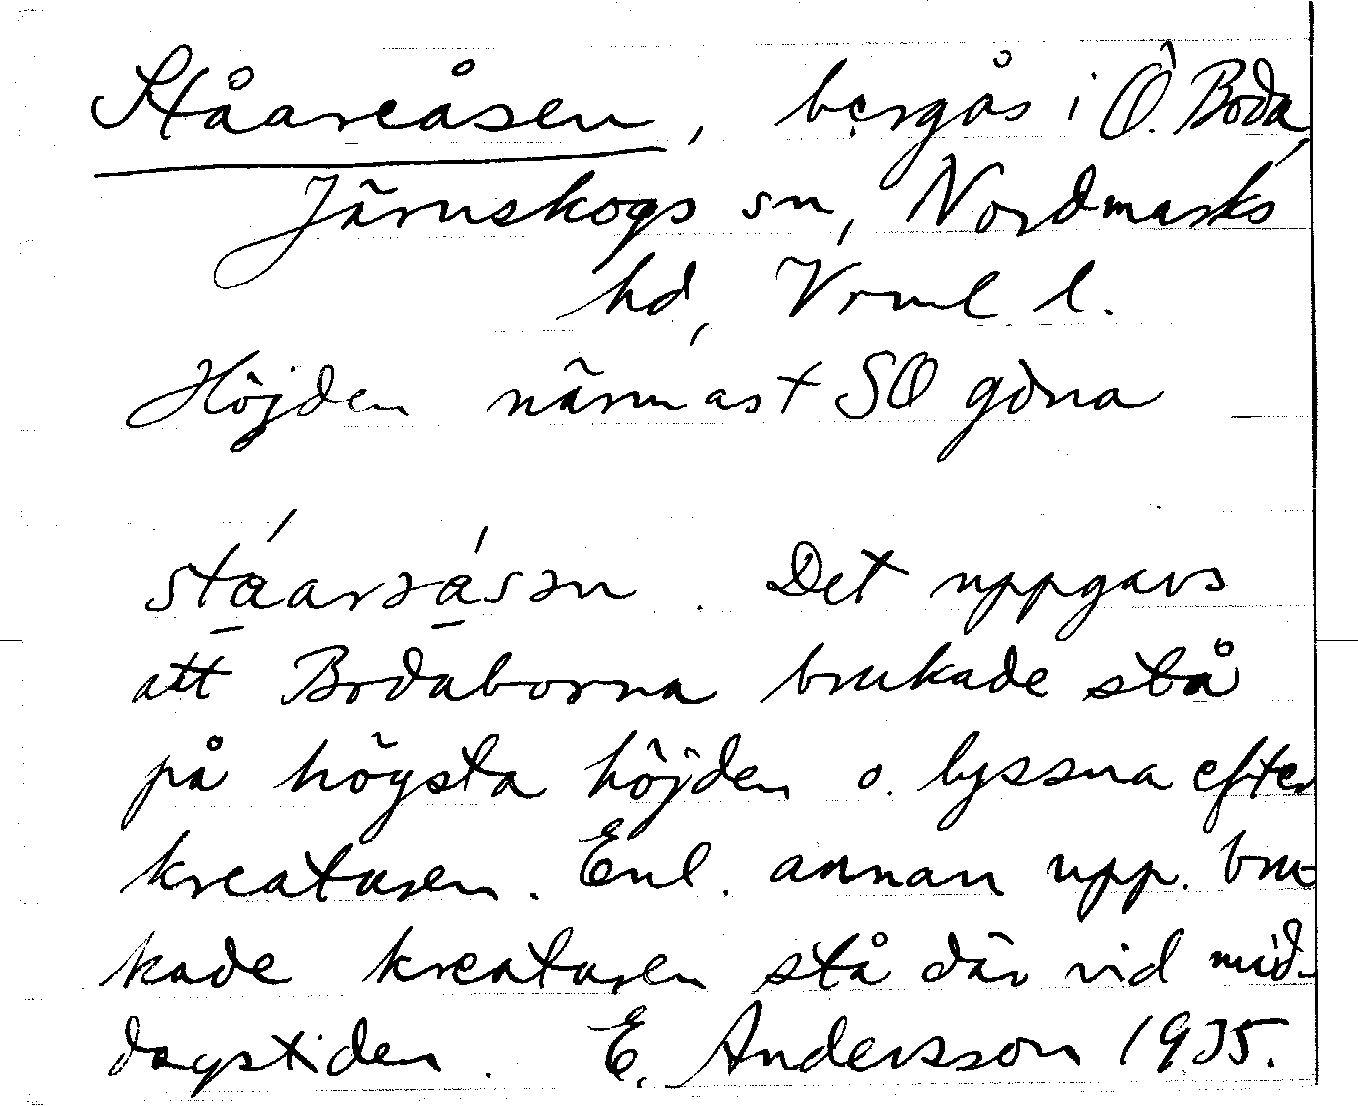 Ståareåsen, bergås i Ö. Boda,
Järnskogs sn, Nordmarks
hd, Vrml l.
Höjden närmast SO gdna
stá̱arəá̱sən. Det uppgavs
att Bodaborna brukade stå
på högsta höjden o. lyssna efter
kreaturen. Enl. annan upp. bru-
kade kreaturen stå där vid mid-
dagstiden. E. Andersson 1935.